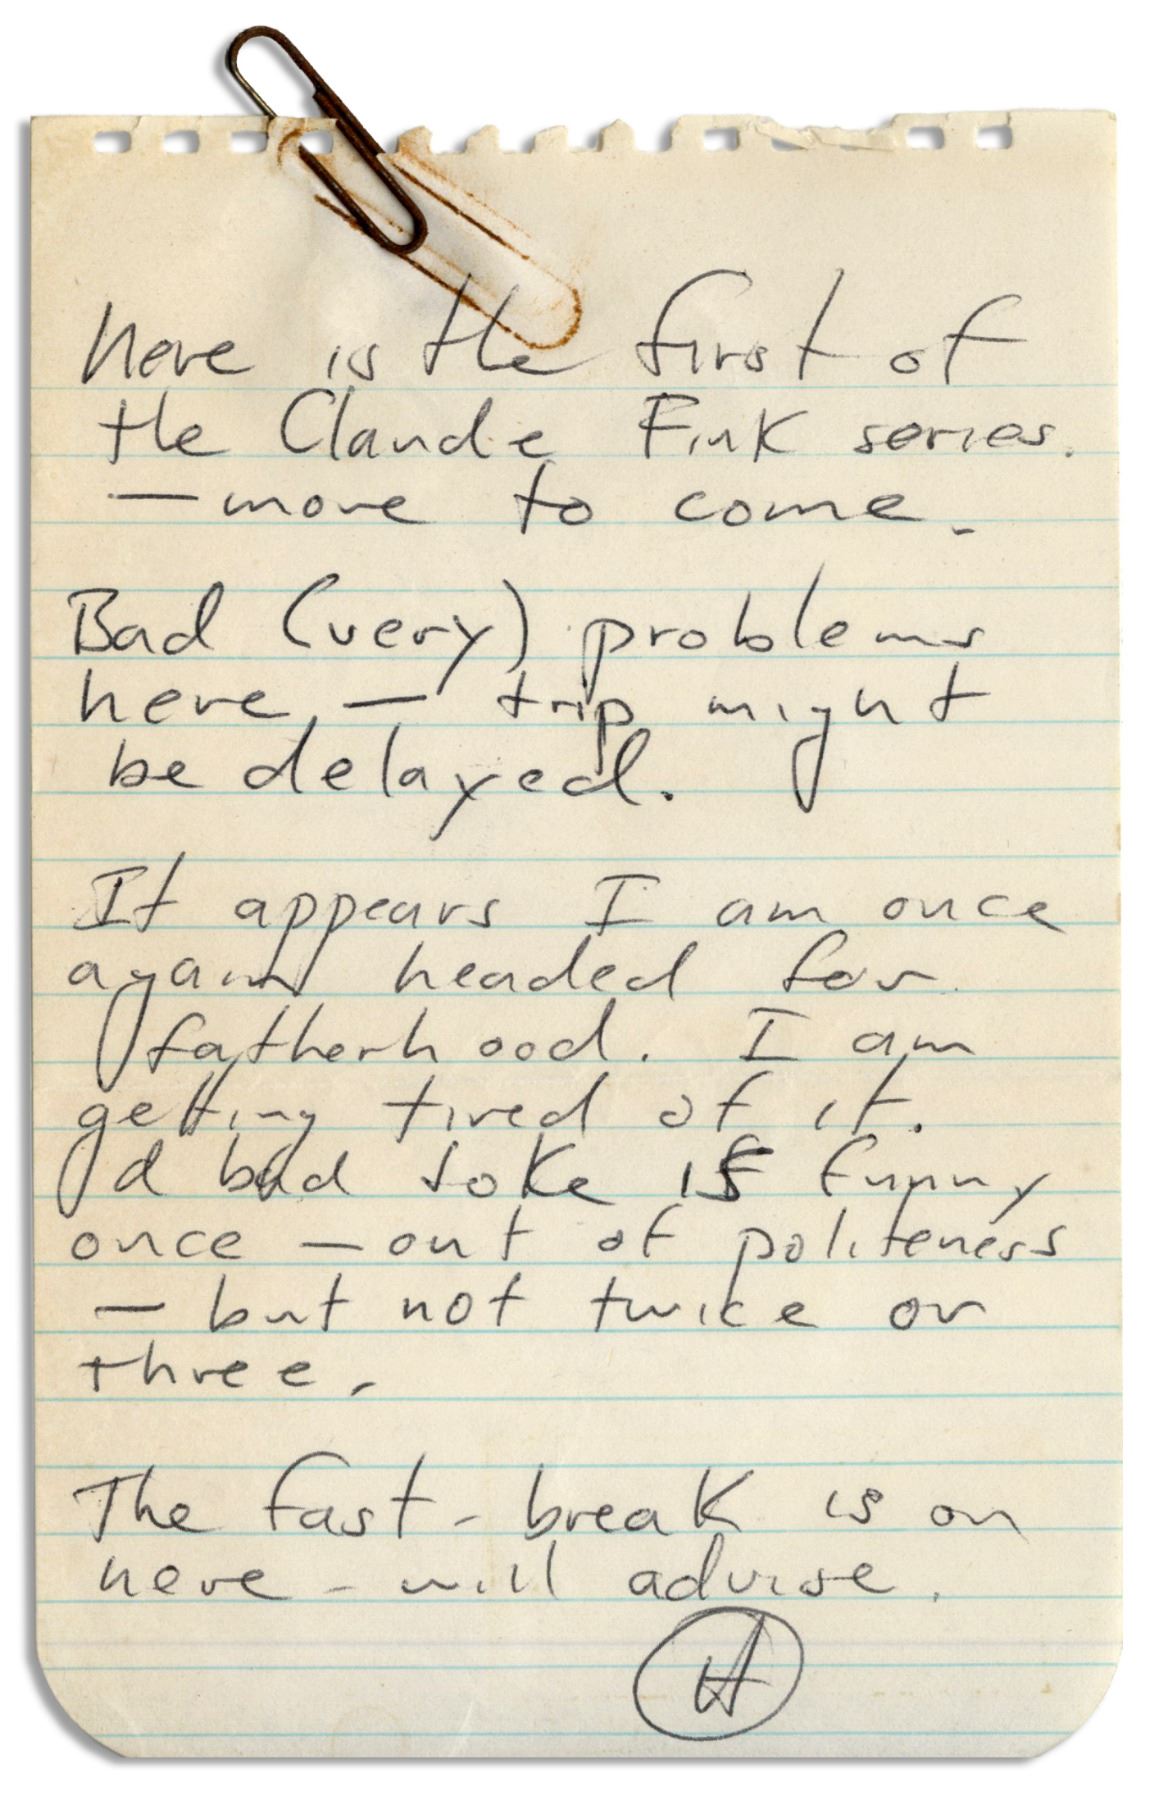 here is the first of
the Claude Fink series.
— more to come.
Bad (very) problems
here — trip might
be delayed.
It appears I am once
again headed for
fatherhood. I am
getting tired of it.
a bad joke is funny
once — out of politeness
— but not twice or
three.
The fast-break is on
here - will advise.
H